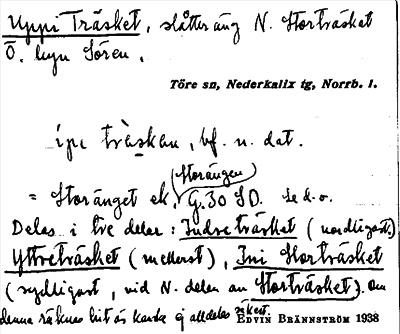 Uppi Träsket, slåtteräng N. Storträsket
Ö. byn Sören.
Töre sn, Nederkalix tg, Norrb. l.
ipi träskan, bf. n. dat.
(Storängen)
= Storänget ek. G.30 SD. Se d.o.
Delas i tre delar: Indreträsket (nordligast)
Yttreträsket (mellerst), Ini Storträsket
(sydligast, vid N. delen av Storträsket). Om
denna räknas hit är kanske ej alldeles säkert.
EDVIN BRÄNNSTRÖM 1938